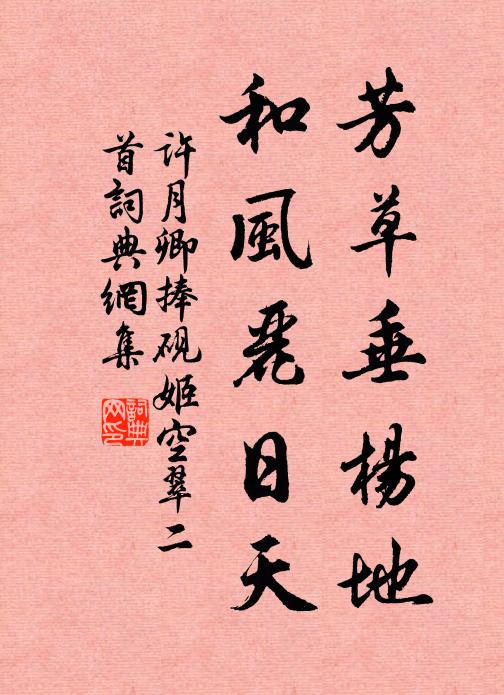 芳草垂楊地
和風麗日天
許月卿捧硯姬空翠二
首詞典網集
詞典
网印